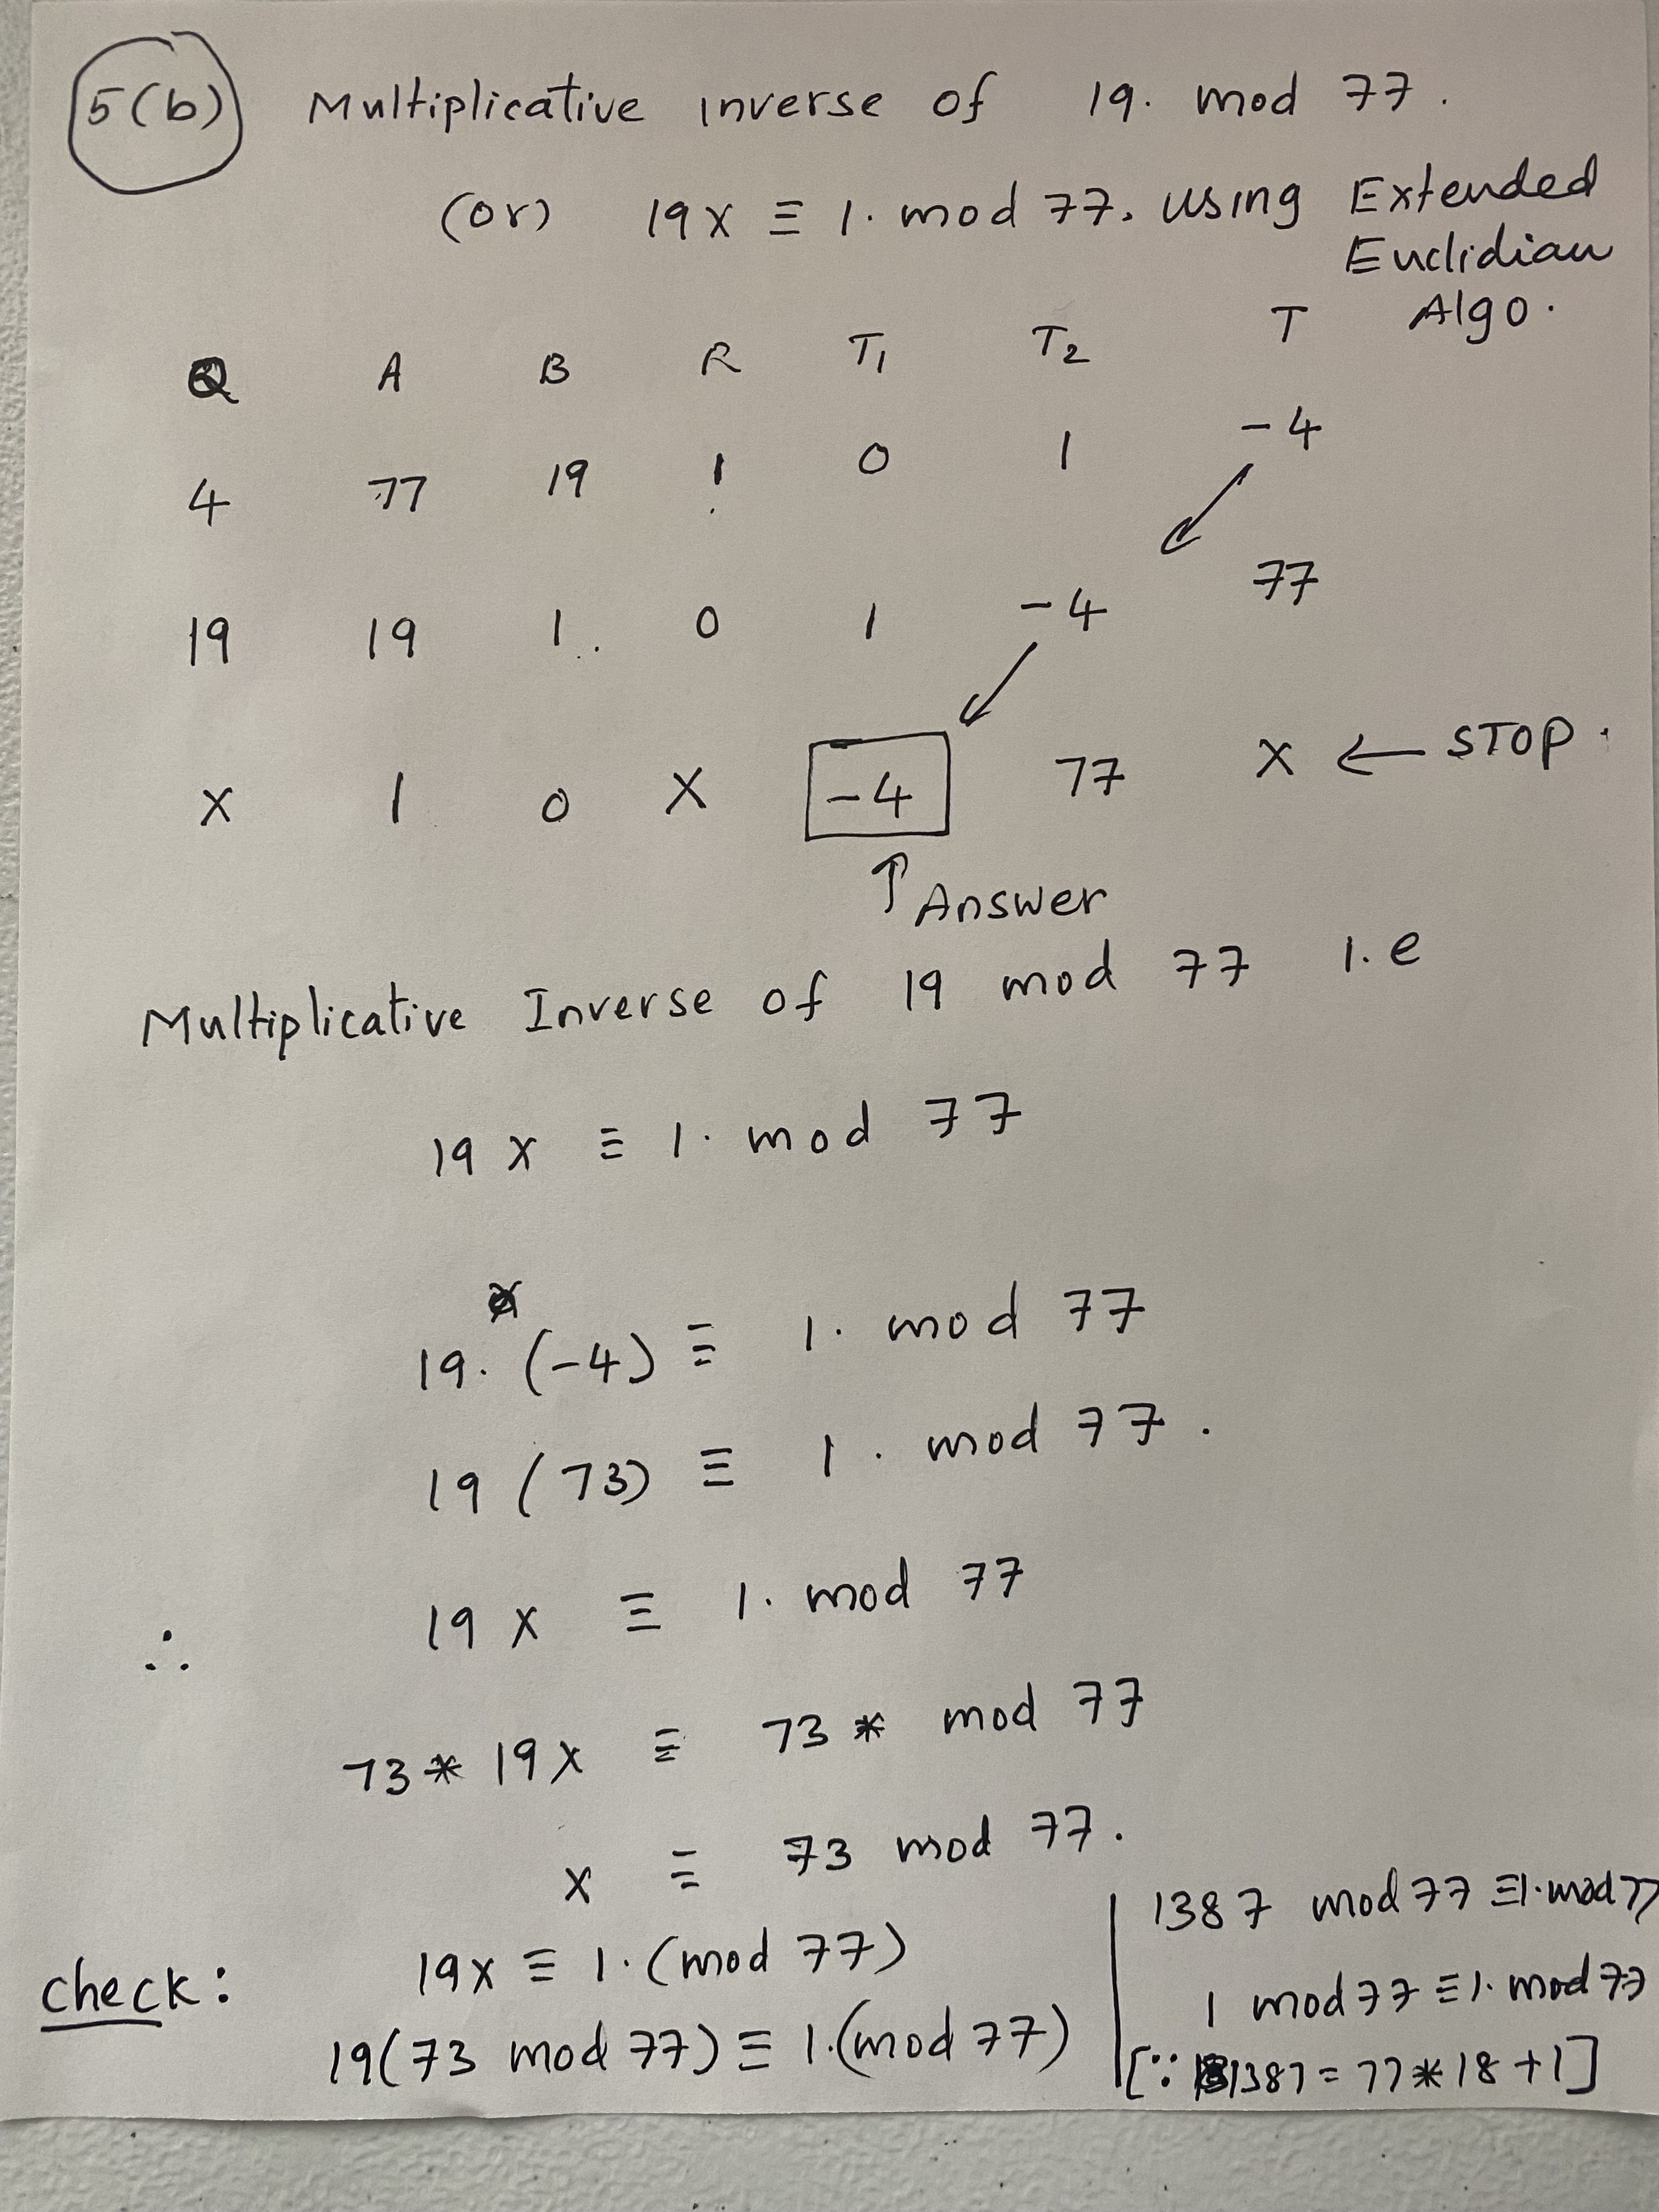 5(b) Multiplicative inverse of 19. mod 77.
(or) 19x ≡ 1. mod 77. using Extended
Euclidian
Algo.
Q A B R T1 T2 T
4 77 19 1 0 1 -4
19 19 1 0 1 -4 77
X 1 0 X -4 77 X ← STOP.
↑ Answer
Multiplicative Inverse of 19 mod 77 i.e
19x ≡ 1. mod 77
19. (-4) ≡ 1. mod 77
19 (73) ≡ 1. mod 77.
∴ 19x ≡ 1. mod 77
73* 19x ≡ 73* mod 77
x ≡ 73 mod 77.
check: 19x ≡ 1. (mod 77)
19(73 mod 77) ≡ 1.(mod 77)
1387 mod 77 ≡ 1. mod 77
1 mod 77 ≡ 1. mod 77
[∵ 1387 = 77*18+1]